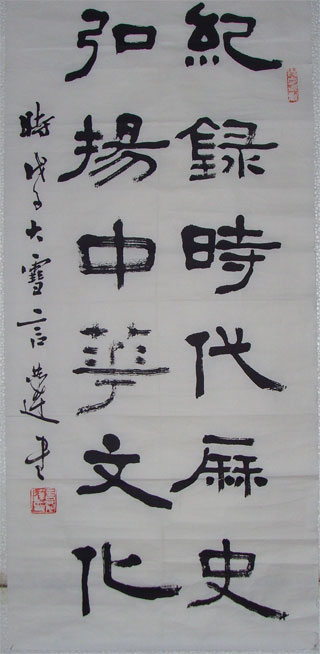 紀錄時代厤史
弘揚中華文化
時戊子大雪言達書